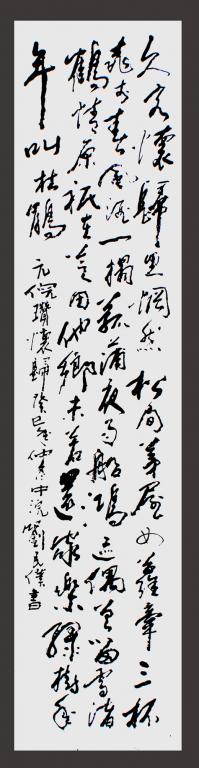 久客懷歸思惘然松間茅屋女蘿牽三杯
桃李春風酒一榻菰蒲夜雨船鴻迹偶曾留雪渚
鶴情原祇在芝田他鄉未若還家樂綠樹年
年叫杜鵑
元倪瓚懷歸癸巳年仲春中浣劉書